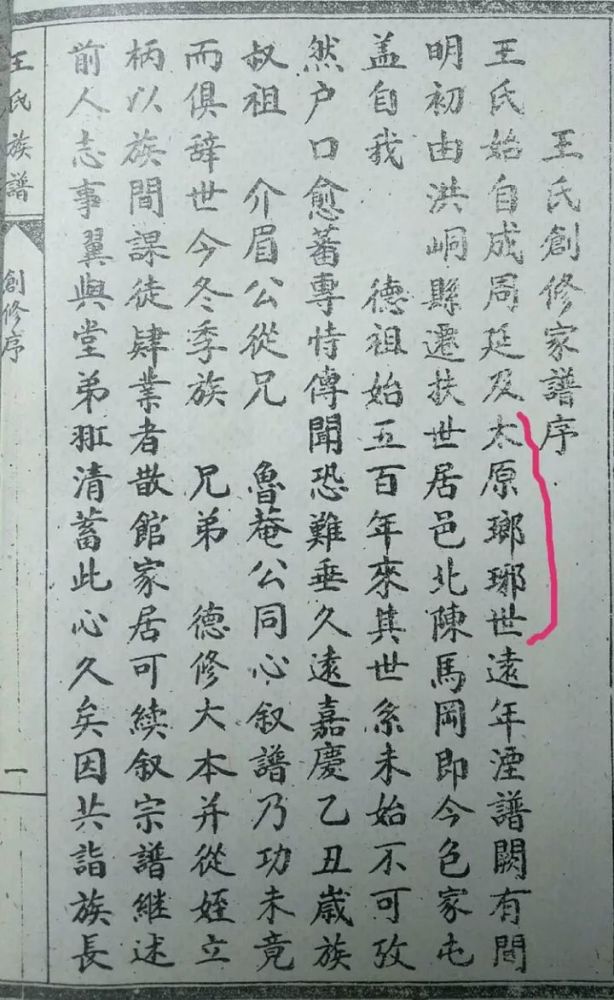 王氏創修家譜序
王氏始自成周延及太原瑯琊世遠年湮譜闕有間
明初由洪峒縣遷扶世居邑北陳馬岡即今色家屯
盖自我 德祖始五百年來其世系未始不可攷
然户口愈蕃專恃傳聞恐難垂久遠嘉慶乙丑歲族
叔祖 介眉公從兄 魯菴公同心叙譜乃功未竟
而俱辞世今冬季族 兄弟 德修大本并從姪立
柄以族間課徒肄業者散館家居可續叙宗譜継述
前人志事翼與堂弟羾清蓄此心久矣因共詣族長
王氏族譜
創修序
一